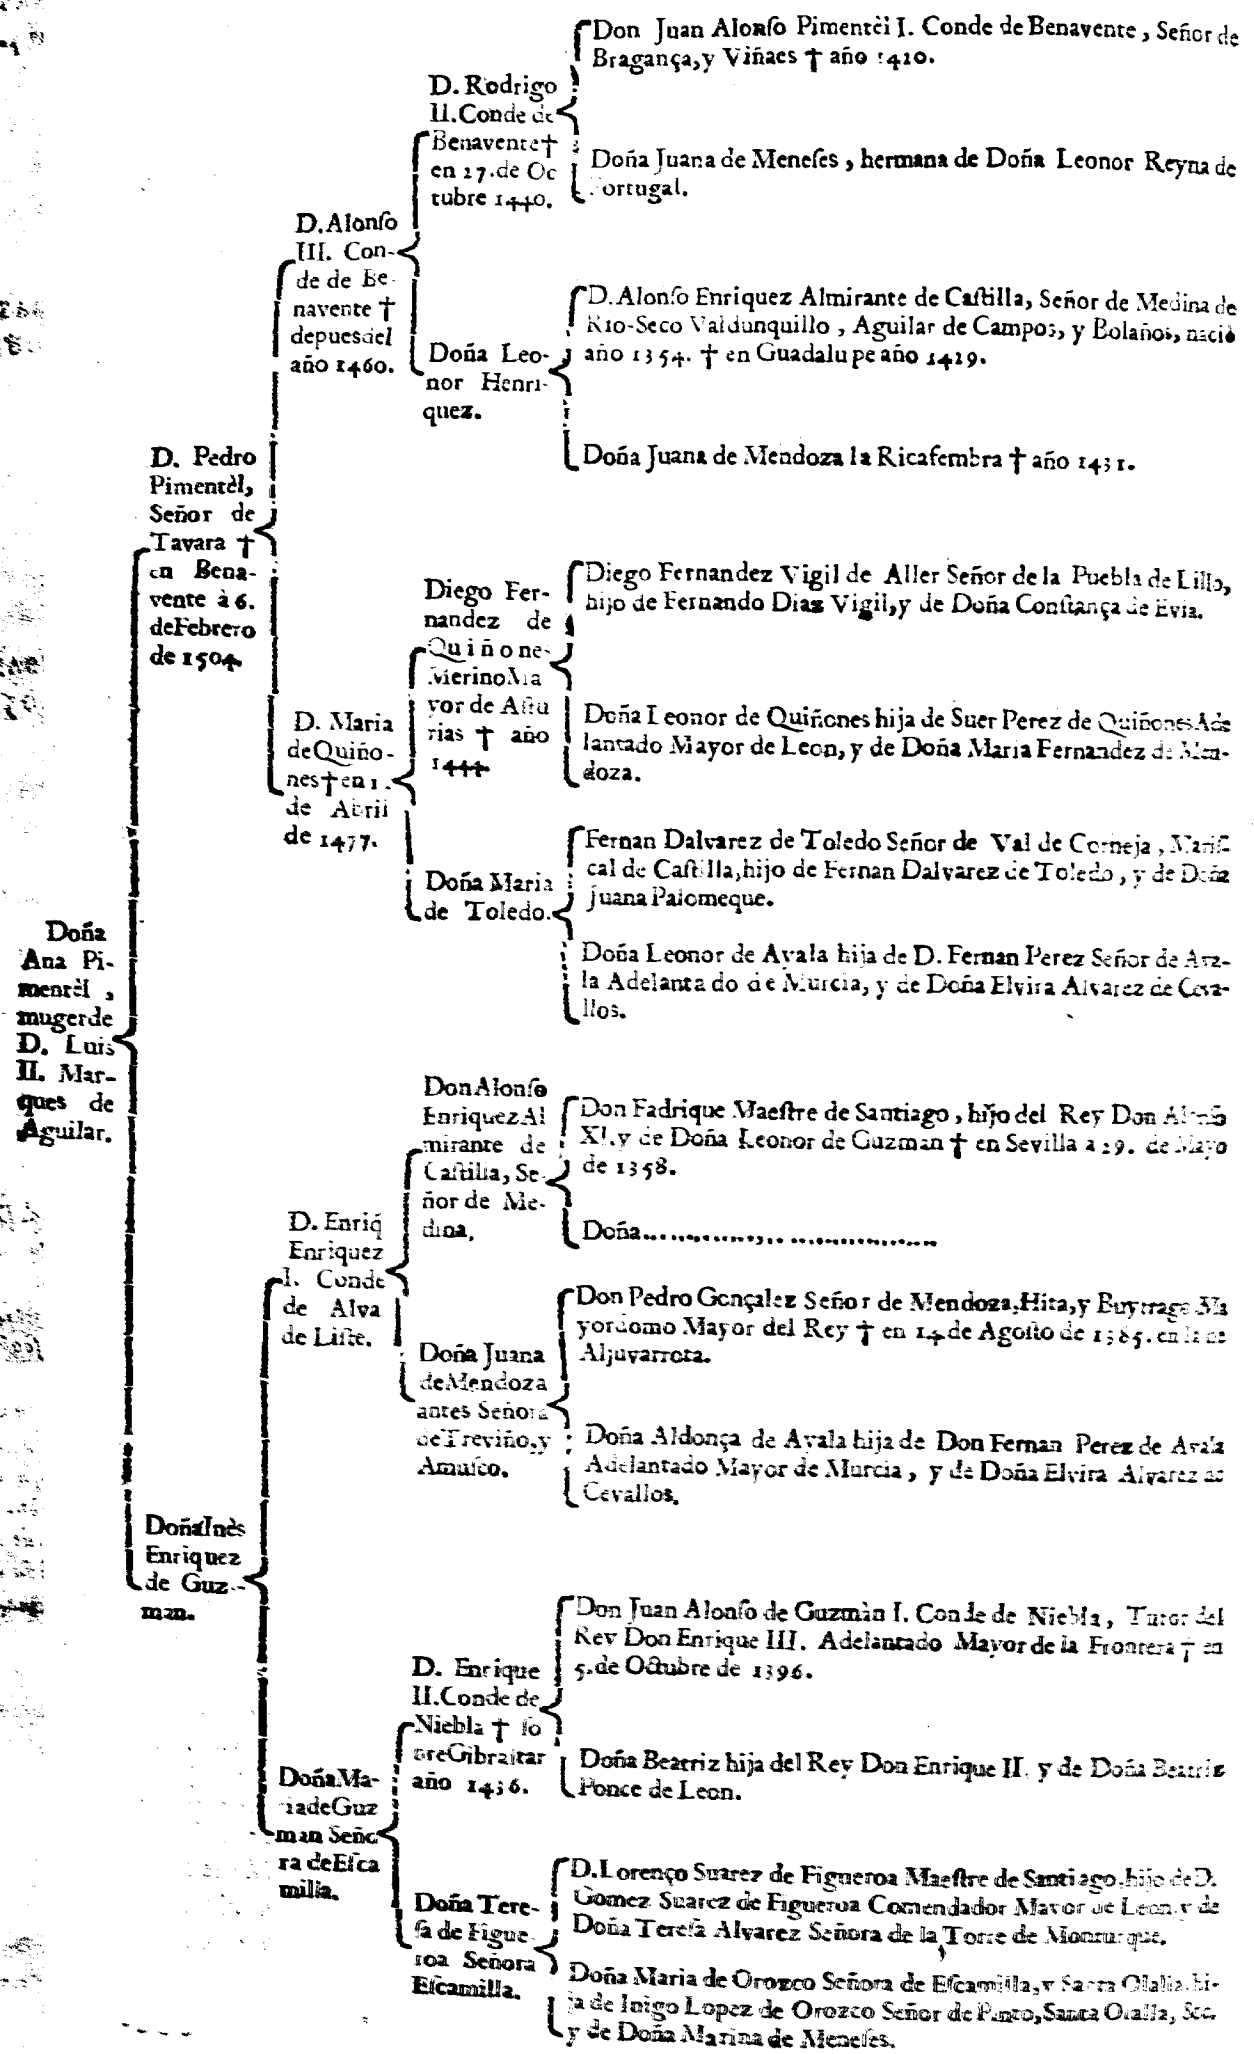 Doña
Ana Pi-
mentèl ,
mugerde
D. Luis
II. Mar-
ques de
Aguilar.
D. Pedro
Pimentèl,
Señor de
Tavara †
en Bena-
vente à 6.
deFebrero
de 1504.
DoñaInès
Enriquez
de Guz-
man.
D. Alonſo
III. Con-
de de Be-
navente †
depuesdel
año 1460.
D. Maria
deQuiño-
nes†en 1.
de Abril
de 1477.
D. Enriq̃
Enriquez
I. Conde
de Alva
de Liſte.
DoñaMa-
riadeGuz
man Seño
ra deEſca
milla.
D. Rodrigo
II.Conde de
Benavente†
en 27.de Oc
tubre 1440.
Doña Leo-
nor Henri-
quez.
Diego Fer-
nandez de
Quiñone-
MerinoMa
yor de Aſtu
rias † año
1444.
Doña Maria
de Toledo.
DonAlonſo
EnriquezAl
mirante de
Caſtilla, Se-
ñor de Me-
dina,
Doña Juana
deMendoza
antes Señora
deTreviño,y
Amuſco.
D. Enrique
II.Conde de
Niebla † ſo
breGibraltar
año 1436.
Doña Tere-
ſa de Figue-
roa Señora
Eſcamilla.
Don Juan Alonſo Pimentèl I. Conde de Benavente , Señor de
Bragança,y Viñaes † año 1410.
Doña Juana de Meneſes , hermana de Doña Leonor Reyna de
Portugal.
D. Alonſo Enriquez Almirante de Caſtilla, Señor de Medina de
Rio-Seco Valdunquillo , Aguilar de Campos, y Bolaños, naciò
año 1354. † en Guadalupe año 1429.
Doña Juana de Mendoza la Ricafembra † año 1431.
Diego Fernandez Vigil de Aller Señor de la Puebla de Lillo,
hijo de Fernando Diaz Vigil,y de Doña Conſtança de Evia.
Doña Leonor de Quiñones hija de Suer Perez de QuiñonesAde
lantado Mayor de Leon, y de Doña Maria Fernandez de Men-
doza.
Fernan Dalvarez de Toledo Señor de Val de Corneja , Mariſ-
cal de Caſtilla,hijo de Fernan Dalvarez de Toledo , y de Doña
Juana Palomeque.
Doña Leonor de Ayala hija de D. Fernan Perez Señor de Aya-
la Adelantado de Murcia, y de Doña Elvira Alvarez de Ceva-
llos.
Don Fadrique Maeſtre de Santiago , hijo del Rey Don Alonſo
XI.y de Doña Leonor de Guzman † en Sevilla a 29. de Mayo
de 1358.
Doña..............................
Don Pedro Gonçalez Señor de Mendoza,Hita,y Buytrago Ma
yordomo Mayor del Rey † en 14.de Agoſto de 1385. en la de
Aljuvarrota.
Doña Aldonça de Ayala hija de Don Fernan Perez de Ayala
Adelantado Mayor de Murcia , y de Doña Elvira Alvarez de
Cevallos.
Don Juan Alonſo de Guzmàn I. Conde de Niebla , Tutor del
Rey Don Enrique III. Adelantado Mayor de la Frontera † en
5.de Octubre de 1396.
Doña Beatriz hija del Rey Don Enrique II. y de Doña Beatriz
Ponce de Leon.
D.Lorenço Suarez de Figueroa Maeſtre de Santiago,hijo de D.
Gomez Suarez de Figueroa Comendador Mayor de Leon,y de
Doña Tereſa Alvarez Señora de la Torre de Monturque.
Doña Maria de Orozco Señora de Eſcamilla,y Santa Olalla,hi-
ja de Inigo Lopez de Orozco Señor de Pinto,Santa Olalla, &c.
y de Doña Marina de Meneſes.